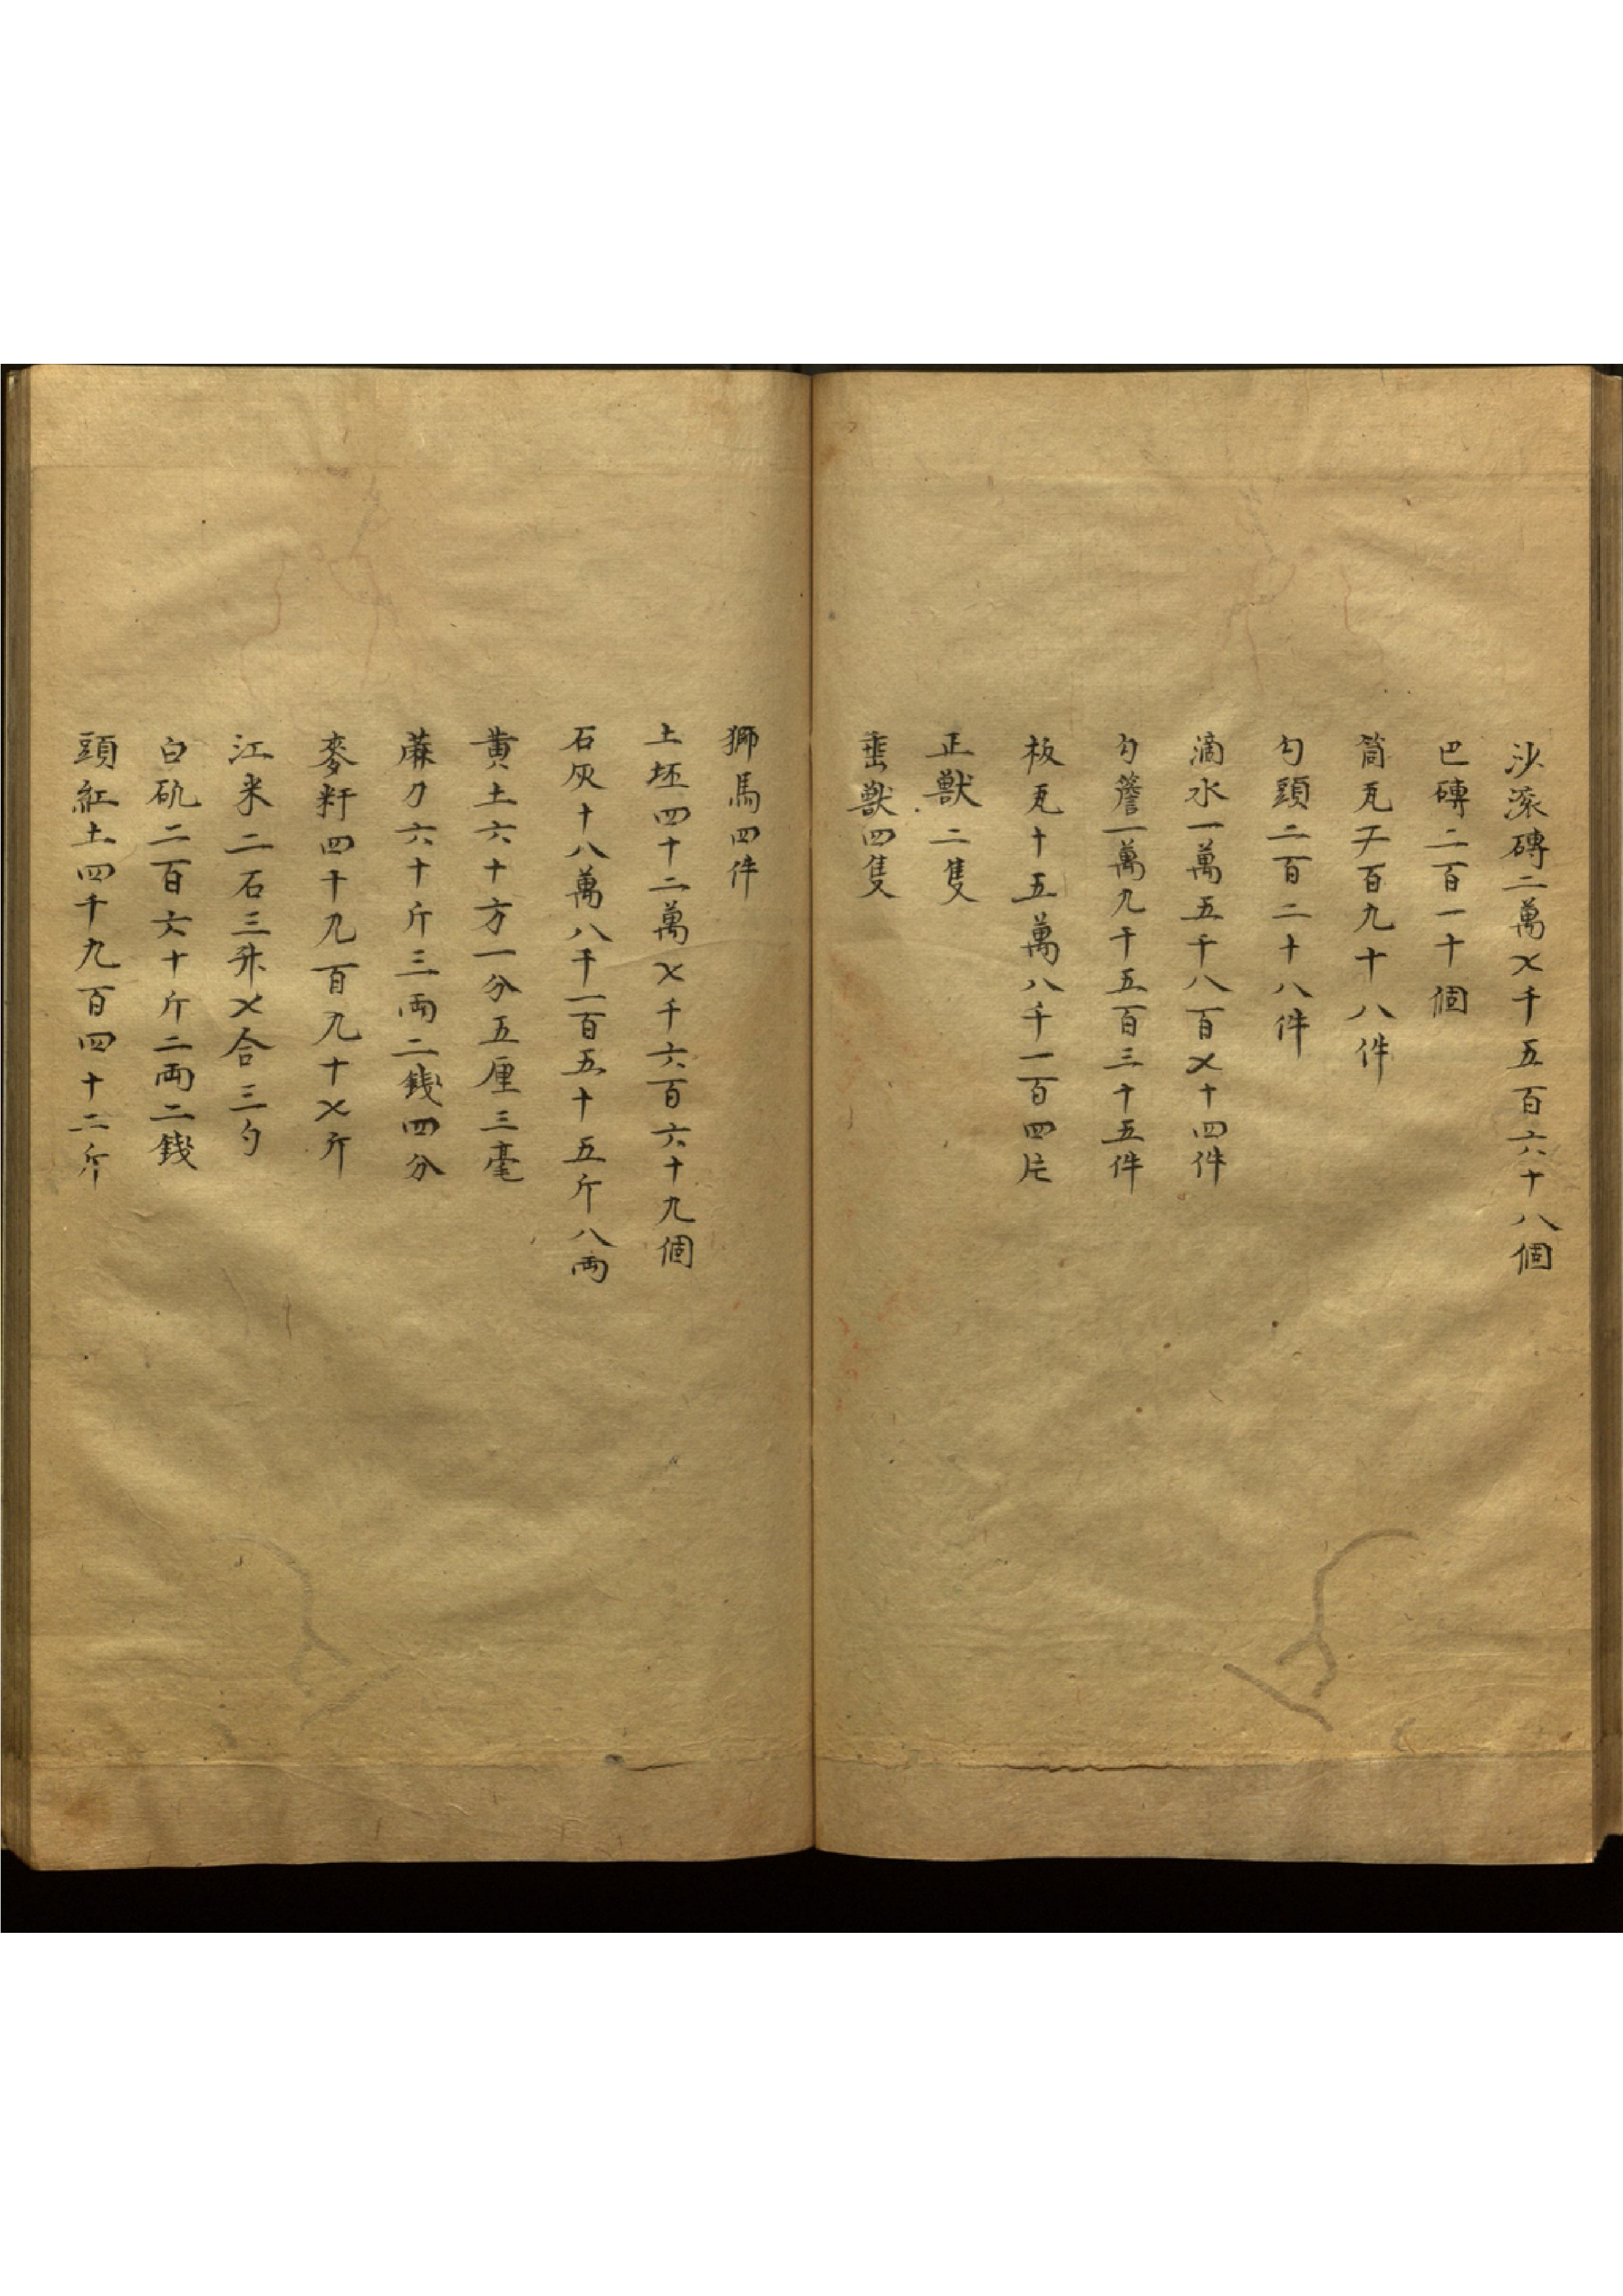 沙滚磚二萬〤千五百六十八個
巴磚二百一十個
筒瓦一千一百九十八件
勾頭二百二十八件
滴水一萬五千八百〤十四件
勾簷一萬九千五百三十五件
板瓦十五萬八千一百四片
正獣二隻
垂獣四隻
獅馬四件
土坯四十二萬〤千六百六十九個
石灰十八萬八千一百五十五斤八両
黄土六十方一分五厘三毫
蔴刀六十斤三両二錢四分
麥籽四十九百九十〤斤
江米二石三升〤合三勺
白矾二百六十斤二両二錢
頭紅土四千九百四十二斤